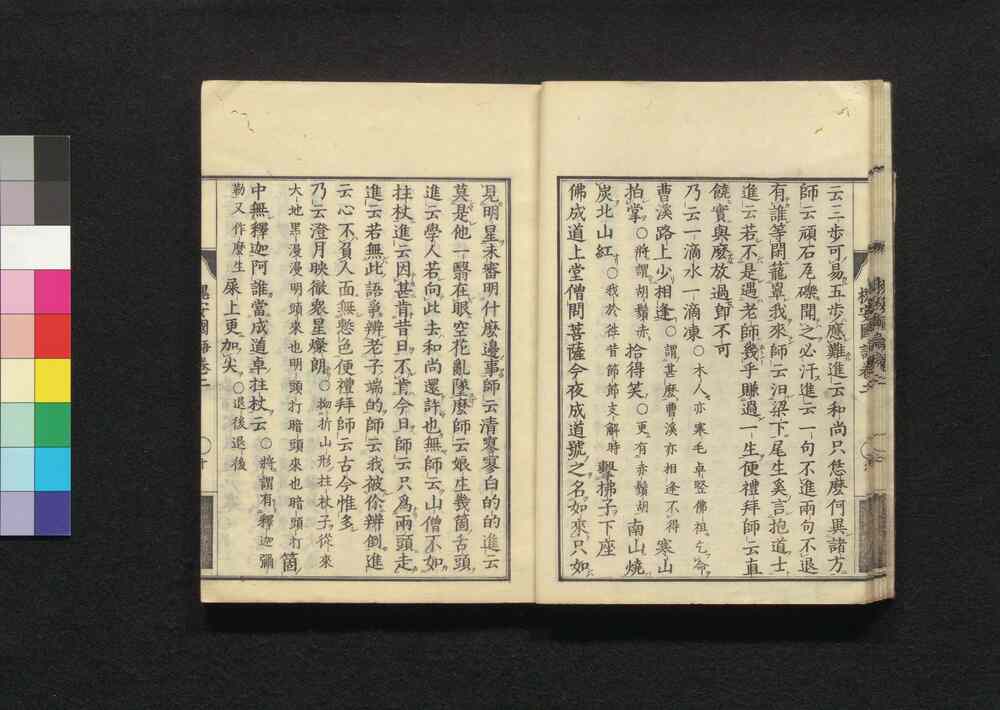 云三歩可易五歩應難進云和尚只恁麼何異諸方
師云頑石瓦礫聞之必汗進云一句不進兩句不退
有誰等閑籠罩我來師云汨梁下尾生奚言抱道士
進云若不是遇老師幾乎賺過一生便禮拜師云直
饒實與麼放過卽不可
乃云一滴水一滴凍○木人亦寒毛卓竪佛祖乞命
曹溪路上少相逢○謂甚麼曹溪亦相逢不得 寒山
拍掌○將謂胡鬚赤 拾得笑○更有赤鬚胡 南山燒
炭北山紅○我於徃昔節節支解時 擊拂子下座
佛成道上堂僧問菩薩今夜成道號之名如來只如
見明星未審明什麼邊事師云清寥寥白的的進云
莫是他一翳在眼空花亂墜麼師云娘生幾箇舌頭
進云學人若向此去和尚還許也無師云山僧不如
拄杖進云因甚肯昔日不肯今日師云只爲兩頭走
進云若無此語爭辨老子端的師云我被你辨倒進
云心不負人面無慙色便禮拜師云古今惟多
乃云澄月映徹衆星燦朗○拗折山形拄杖子從來
大地黑漫漫明頭來也明頭打暗頭來也暗頭打 箇
中無釋迦阿誰當成道卓拄杖云○將謂有釋迦彌
勒又作麼生 屎上更加尖○退後退後